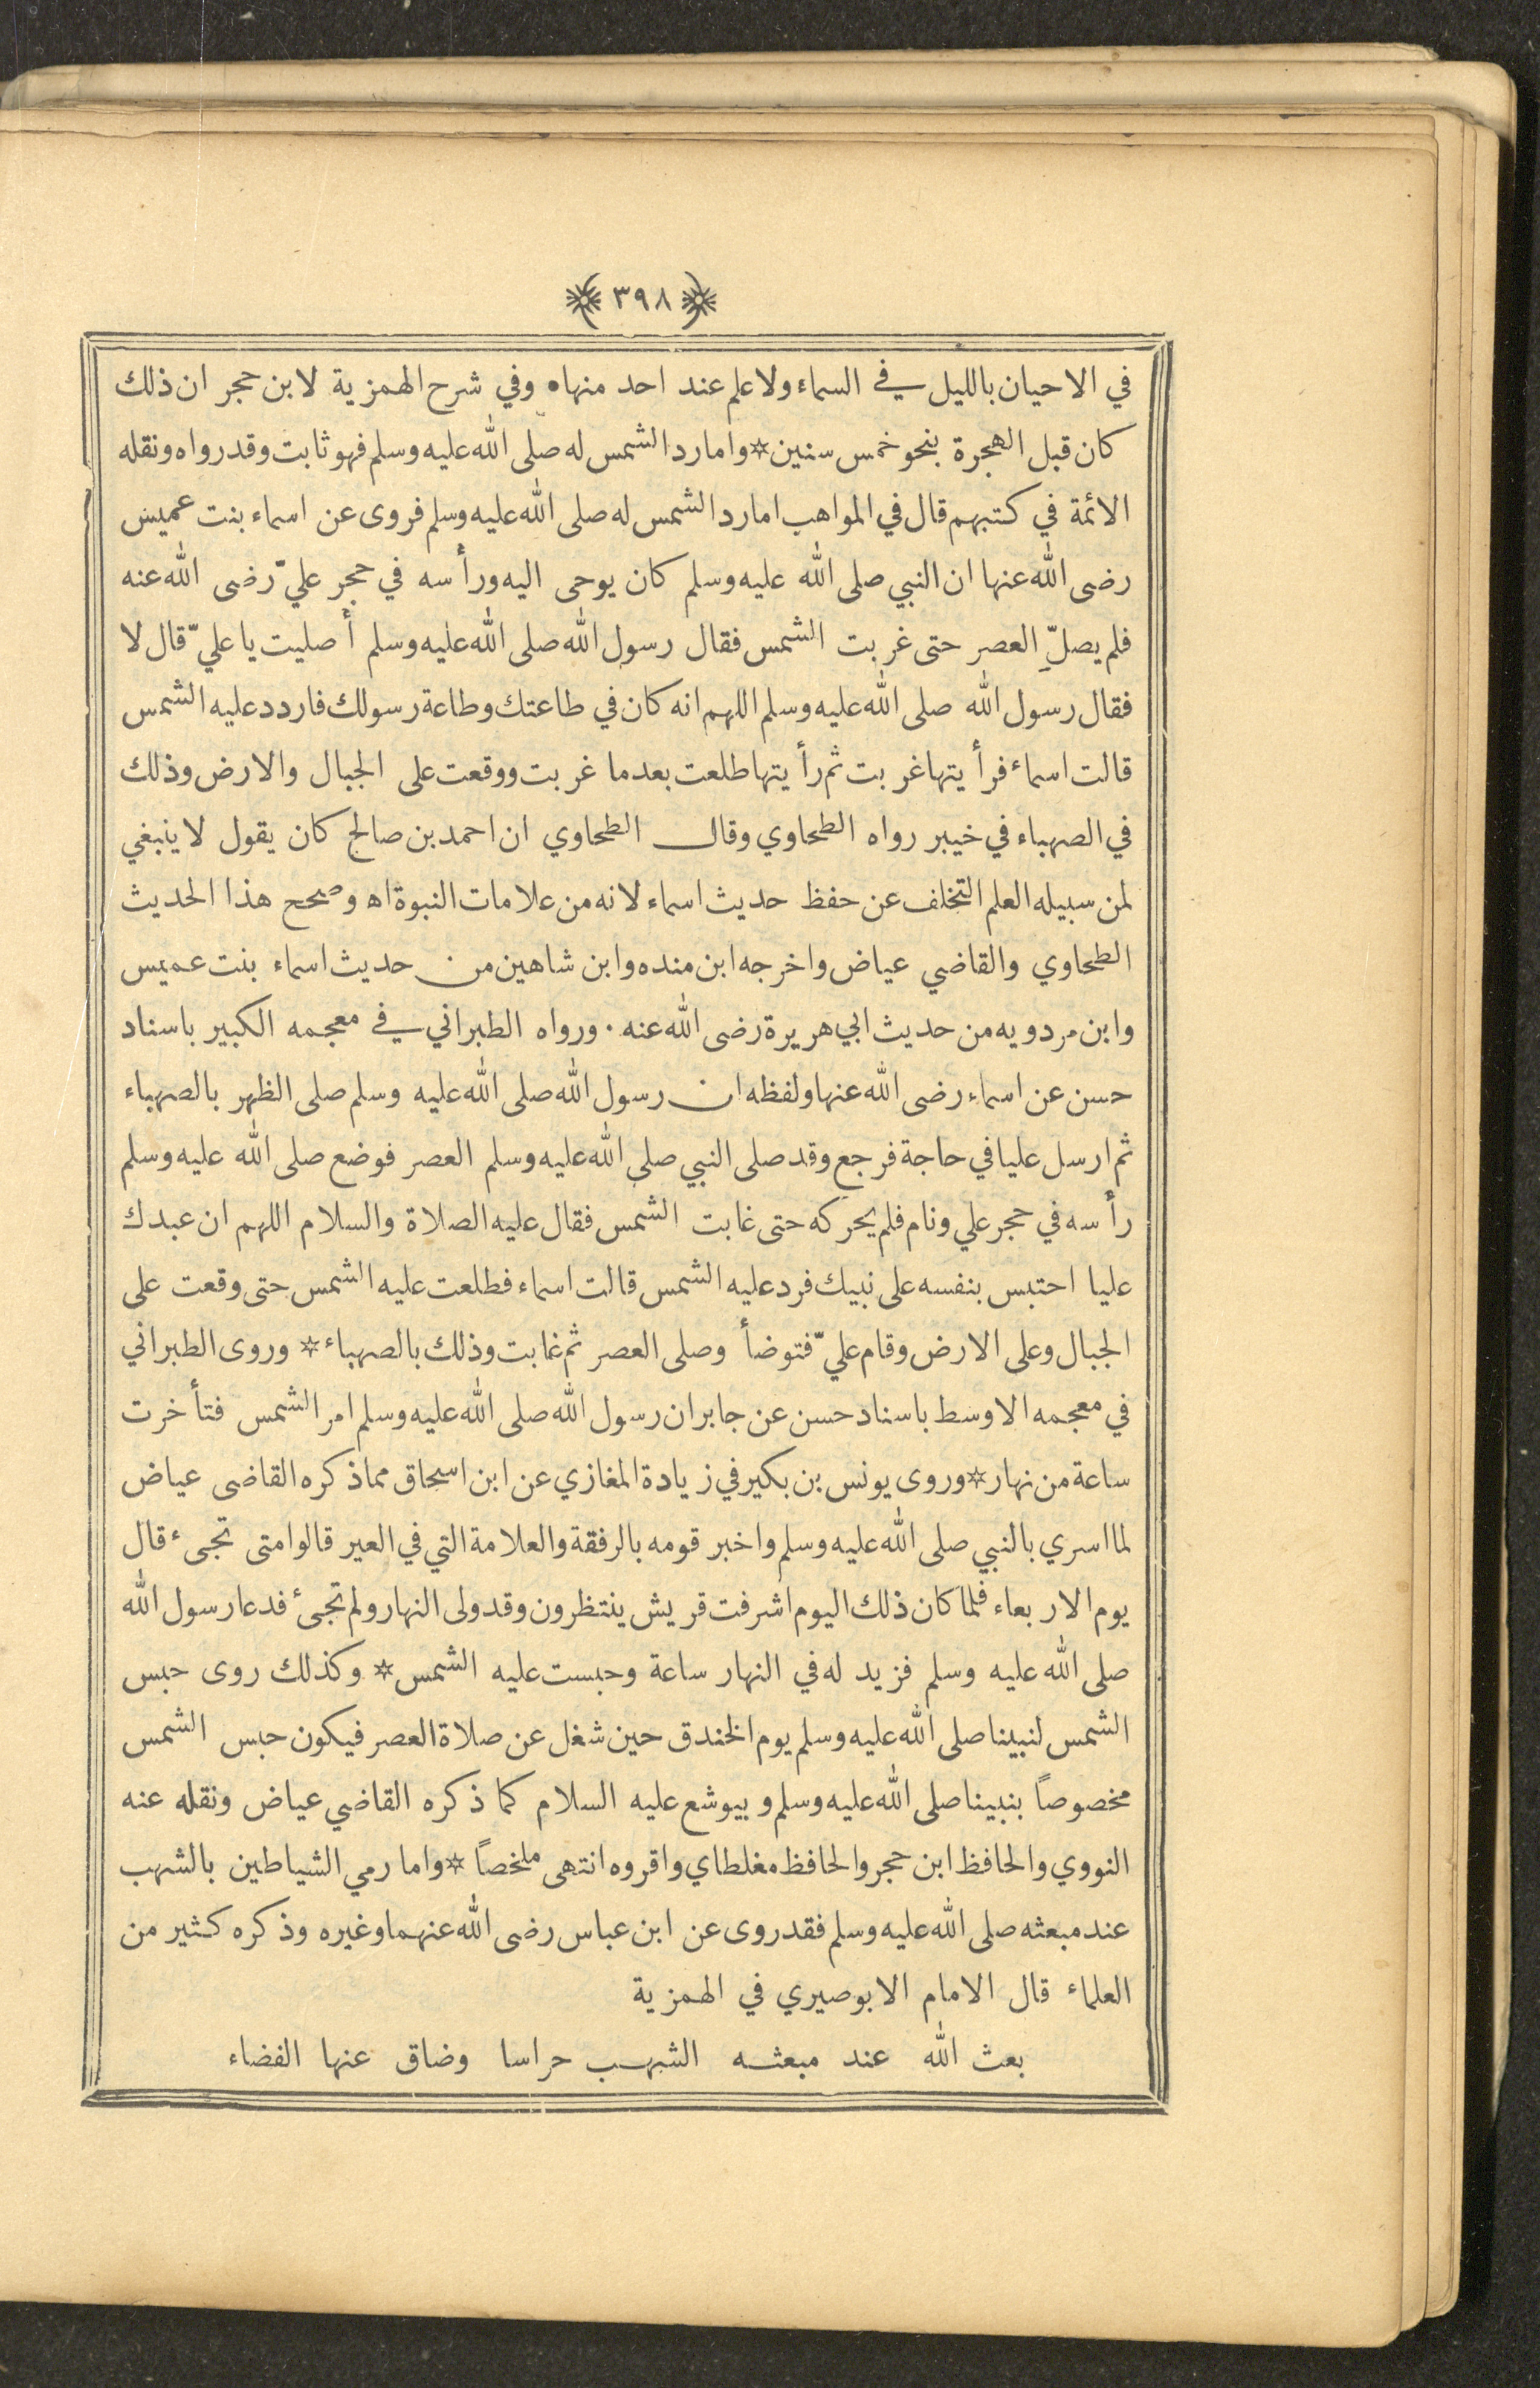 ﴿ ٣٩٨ ﴾
في الاحيان بالليل في السماء ولا علم عند احد منها ه وفي شرح الهمزية لابن حجر ان ذلك
كان قبل الهجرة بنحو خمس سنين * واما رد الشمس له صلى الله عليه وسلم فهو ثابت وقد رواه ونقله
الائمة في كتبهم قال في المواهب اما رد الشمس له صلى الله عليه وسلم فروى عن اسماء بنت عميس
رضى الله عنها ان النبي صلى الله عليه وسلم كان يوحى اليه ورأسه في حجر عليّ رضى الله عنه
فلم يصلِّ العصر حتى غربت الشمس فقال رسول الله صلى الله عليه وسلم أصليت يا عليّ قال لا
فقال رسول الله صلى الله عليه وسلم اللهم انه كان في طاعتك وطاعة رسولك فاردد عليه الشمس
قالت اسماء فرأيتها غربت ثم رأيتها طلعت بعدما غربت ووقعت على الجبال والارض وذلك
في الصهباء في خيبر رواه الطحاوي وقال الطحاوي ان احمد بن صالح كان يقول لا ينبغي
لمن سبيله العلم التخلف عن حفظ حديث اسماء لانه من علامات النبوة اه وصحح هذا الحديث
الطحاوي والقاضي عياض واخرجه ابن منده وابن شاهين من حديث اسماء بنت عميس
وابن مردويه من حديث ابي هريرة رضى الله عنه . ورواه الطبراني في معجمه الكبير باسناد
حسن عن اسماء رضى الله عنها ولفظه ان رسول الله صلى الله عليه وسلم صلى الظهر بالصهباء
ثم ارسل عليا في حاجة فرجع وقد صلى النبي صلى الله عليه وسلم العصر فوضع صلى الله عليه وسلم
رأسه في حجر علي ونام فلم يحركه حتى غابت الشمس فقال عليه الصلاة والسلام اللهم ان عبدك
عليا احتبس بنفسه على نبيك فرد عليه الشمس قالت اسماء فطلعت عليه الشمس حتى وقعت على
الجبال وعلى الارض وقام عليّ فتوضأ وصلى العصر ثم غابت وذلك بالصهباء * وروى الطبراني
في معجمه الاوسط باسناد حسن عن جابر ان رسول الله صلى الله عليه وسلم امر الشمس فتأخرت
ساعة من نهار * وروى يونس بن بكير في زيادة المغازي عن ابن اسحاق مما ذكره القاضى عياض
لما اسري بالنبي صلى الله عليه وسلم واخبر قومه بالرفقة والعلامة التي في العير قالوا متى تجىء قال
يوم الاربعاء فلما كان ذلك اليوم اشرفت قريش ينتظرون وقد ولى النهار ولم تجىء فدعا رسول الله
صلى الله عليه وسلم فزيد له في النهار ساعة وحبست عليه الشمس * وكذلك روى حبس
الشمس لنبينا صلى الله عليه وسلم يوم الخندق حين شغل عن صلاة العصر فيكون حبس الشمس
مخصوصاً بنبينا صلى الله عليه وسلم و بيوشع عليه السلام كما ذكره القاضي عياض ونقله عنه
النووي والحافظ ابن حجر والحافظ مغلطاي واقروه انتهى ملخصاً * واما رمي الشياطين بالشهب
عند مبعثه صلى الله عليه وسلم فقد روى عن ابن عباس رضى الله عنهما وغيره وذكره كثير من
العلماء قال الامام الابوصيري في الهمزية
بعث الله عند مبعثه الشهب حراسا وضاق عنها الفضاء